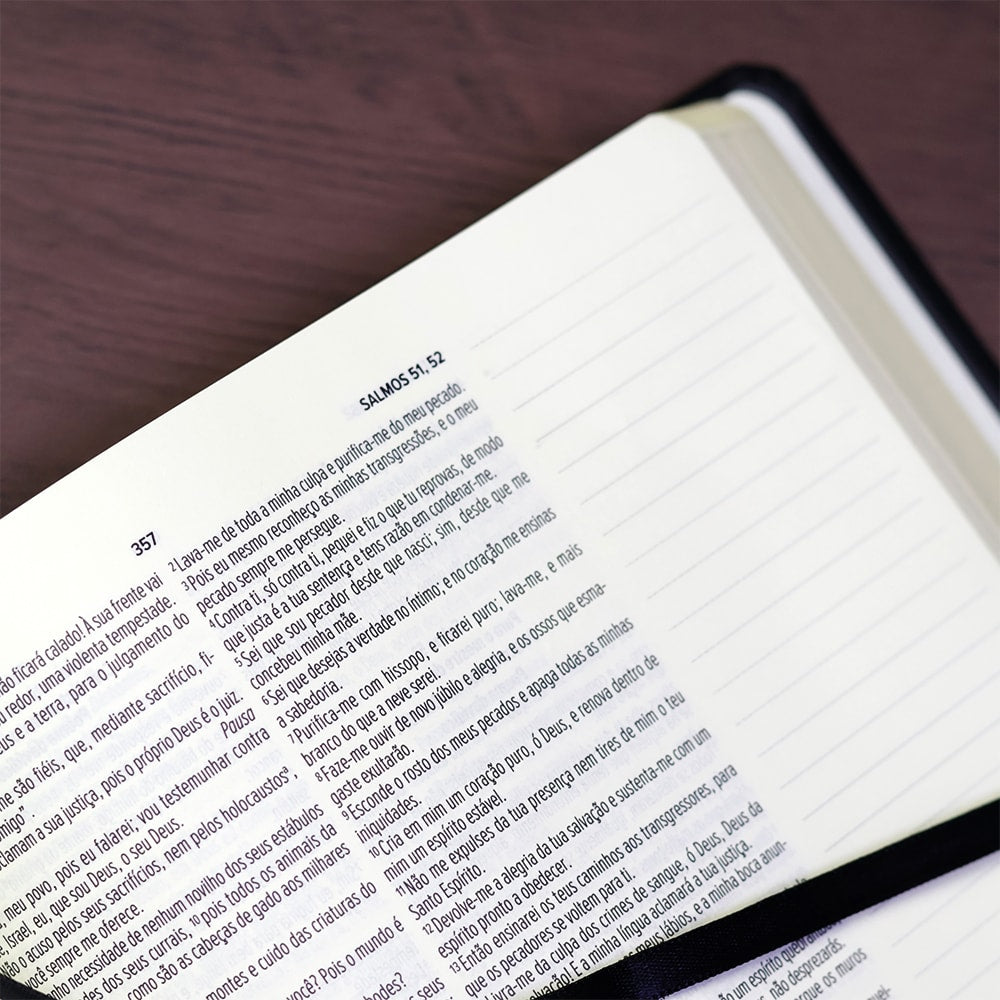 357
SALMOS 51, 52
ão ficará calado! À sua frente vai
redor, uma violenta tempestade.
eus e a terra, para o julgamento do
me são fiéis, que, mediante sacrifício, fi-
migo".
clamam a sua justiça, pois o próprio Deus é o juiz.
Pausa
meu povo, pois eu falarei; vou testemunhar contra
Israel, eu, que sou Deus, o seu Deus.
não o acuso pelos seus sacrifícios, nem pelos holocaustos",
você sempre me oferece.
nho necessidade de nenhum novilho dos seus estábulos
des dos seus currais, ¹⁰ pois todos os animais da
como são as cabeças de gado aos milhares
montes e cuido das criaturas do
você? Pois o mundo é
bodes?
seus
² Lava-me de toda a minha culpa e purifica-me do meu pecado.
³ Pois eu mesmo reconheço as minhas transgressões, e o meu
pecado sempre me persegue.
⁴ Contra ti, só contra ti, pequei e fiz o que tu reprovas, de modo
que justa é a tua sentença e tens razão em condenar-me.
⁵ Sei que sou pecador desde que nasci; sim, desde que me
concebeu minha mãe.
⁶ Sei que desejas a verdade no íntimo; e no coração me ensinas
a sabedoria.
⁷ Purifica-me com hissopo, e ficarei puro; lava-me, e mais
branco do que a neve serei.
⁸ Faze-me ouvir de novo júbilo e alegria, e os ossos que esma-
gaste exultarão.
⁹ Esconde o rosto dos meus pecados e apaga todas as minhas
iniquidades.
¹⁰ Cria em mim um coração puro, ó Deus, e renova dentro de
mim um espírito estável.
¹¹ Não me expulses da tua presença nem tires de mim o teu
Santo Espírito.
¹² Devolve-me a alegria da tua salvação e sustenta-me com um
espírito pronto a obedecer.
¹³ Então ensinarei os teus caminhos aos transgressores, para
que os pecadores se voltem para ti.
Livra-me da culpa dos crimes de sangue, ó Deus, Deus da
salvação! E a minha língua aclamará a tua justiça.
meus lábios, e a minha boca anun-
um espírito quebrantado
não desprezarás.
que os muros